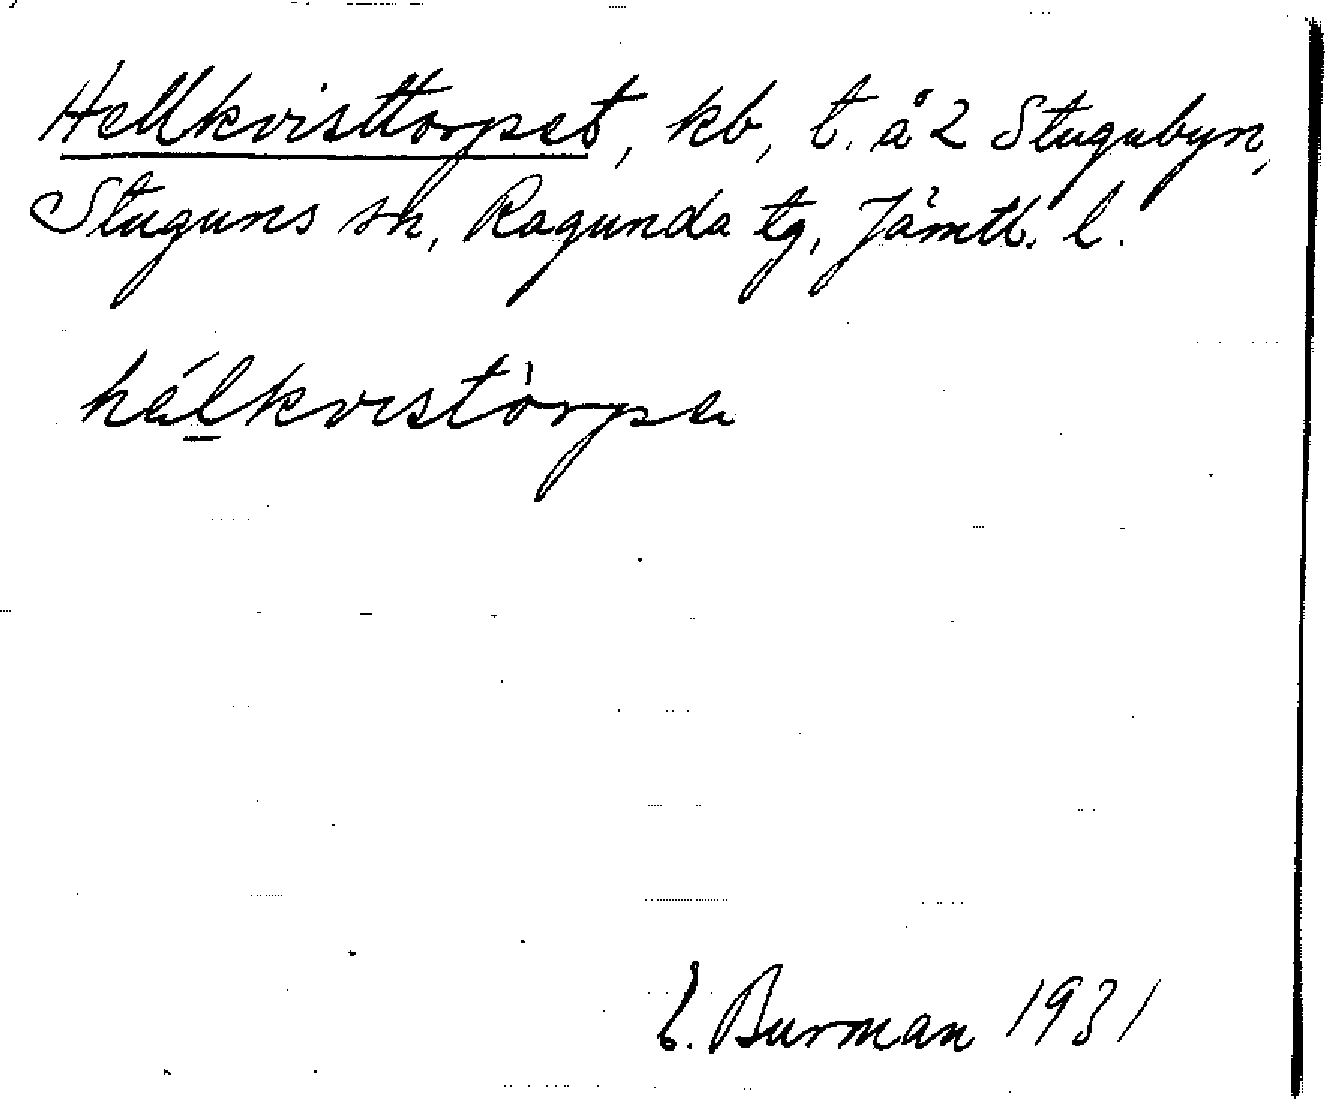 Hellkvisttorpet, kb, t. å 2 Stugubyn,
Stuguns sn, Ragunda tg, Jämtl. l.
hélkvistòrpa
E. Burman 1931